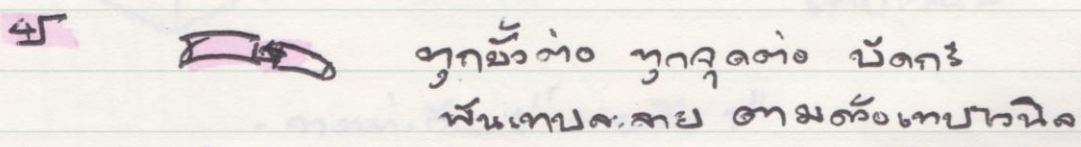 4) ทุกขั้วต่อ ทุกจุดต่อ บัดกรี
พันเทปละลาย ตามด้วยเทปไวนิล